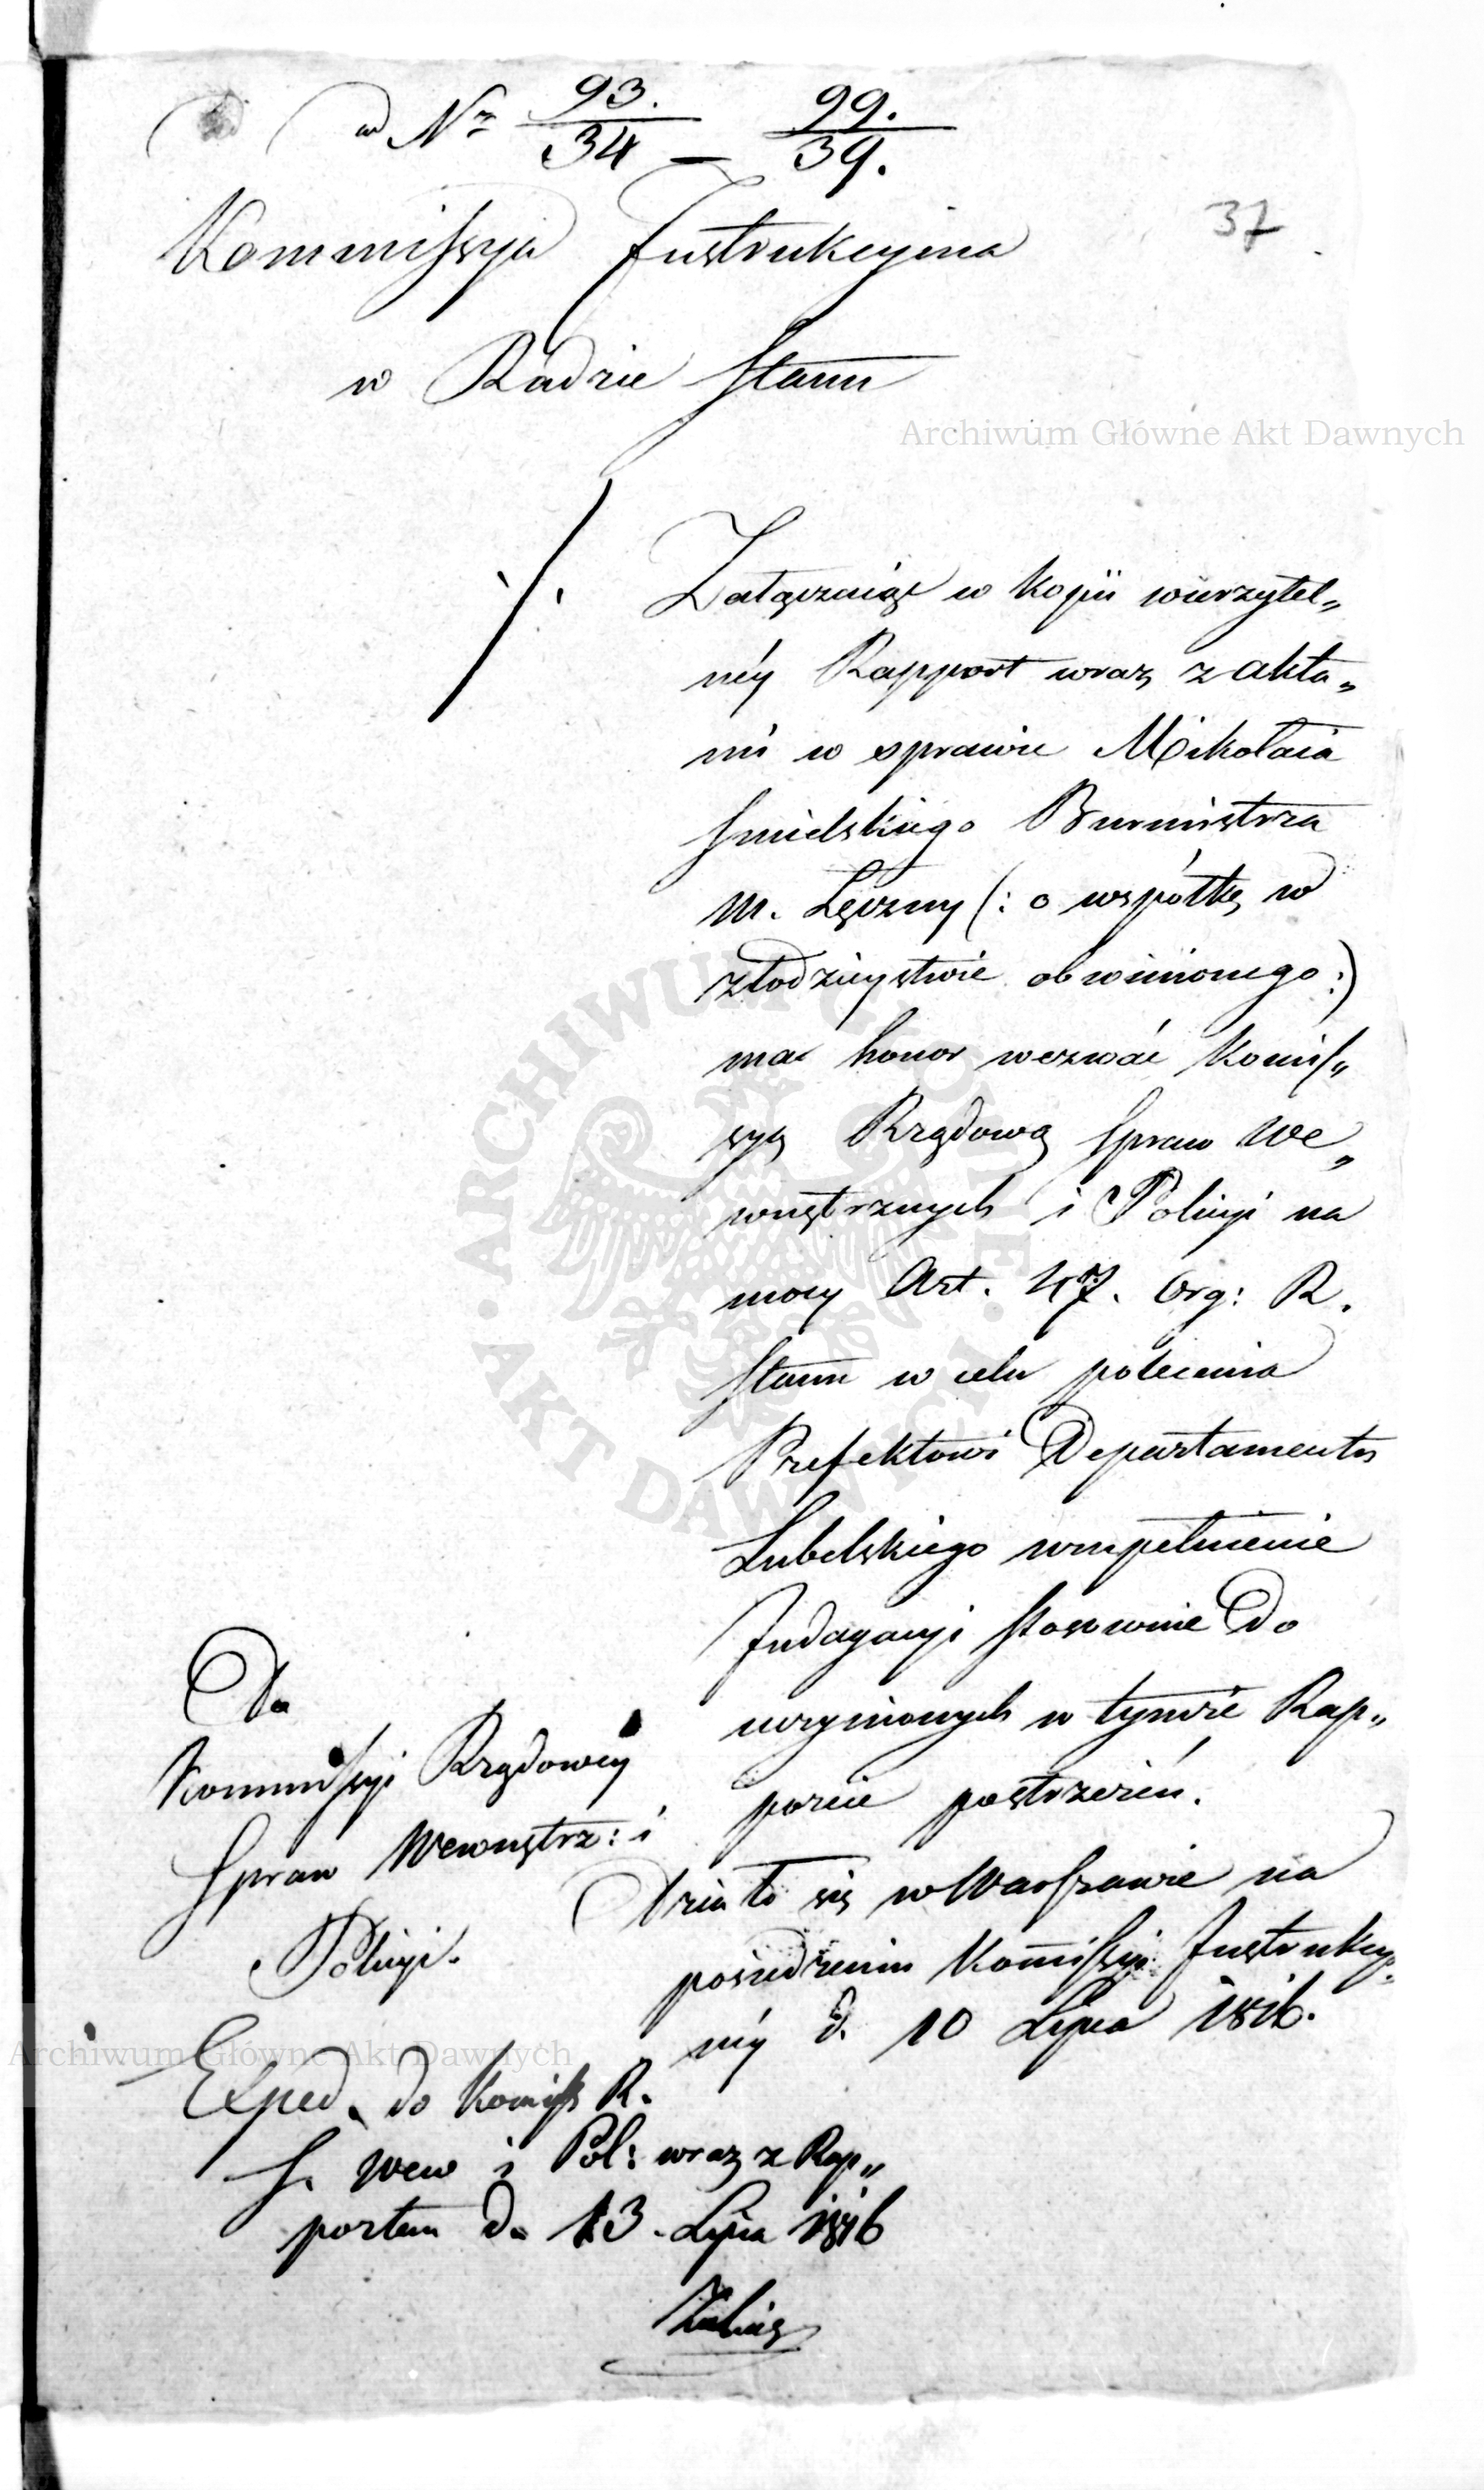 ad Nr 93./34 — 99./39.
37
Kommissyja Instrukcyina
w Radzie Stanu
Archiwum Główne Akt Dawnych
Załączaiąc w kopii wierzytel„
néy Rapport wraz z akta„
mi w sprawie Mikołaia
Smielskiego Burmistrza
M. Łęczny (: o wspołkę w
złodzieystwie obwinionego :)
ma honor wezwać Komis„
syą Rządową Spraw We„
wnętrznych i Policyi na
mocy Art. 47. Org: R.
Stanu w celu polecenia
Prefektowi Departamentu
Lubelskiego uzupełnienie
Indagacyi stosownie do
uczynionych w tymże Rap„
porcie postrzeżeń.
Działo się w Warszawie na
posiedzeniu Komissyi Instrukcy„
néy d. 10 Lipca 1816.
Do
Kommissyi Rządowéy
Spraw Wewnętrz: i
Policyi.
Archiwum Główne Akt Dawnych
Exped. do Komiss R.
S. Wew i Pol: wraz z Rap„
portem d. 13. Lipca 1816
ARCHIWUM GŁÓWNE AKT DAWNYCH